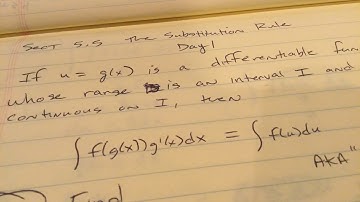 Sect 5.5 The Substitution Rule
Day 1
If u = g(x) is a differentiable fun
whose range is an interval I and
continuous on I, then
∫ f(g(x))g'(x)dx = ∫ f(u)du
AKA "
Find